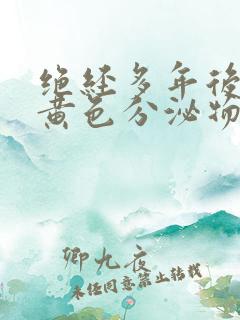 绝经多年後
黄色分泌物
卿九夜
未经同意禁止转载